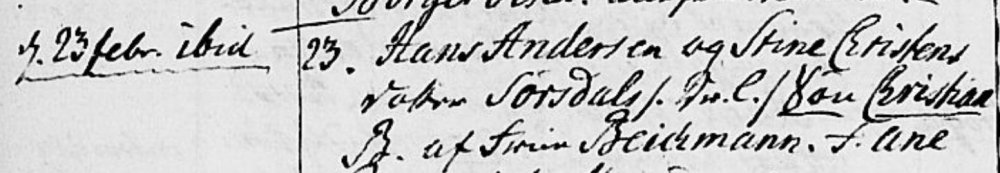 d. 23 febr. ibid
23. Hans Andersen og Stine Christens
datter Sørsdals /: Dr. C. / Søn Christian
B. af Frue Beichmann. F. Ane